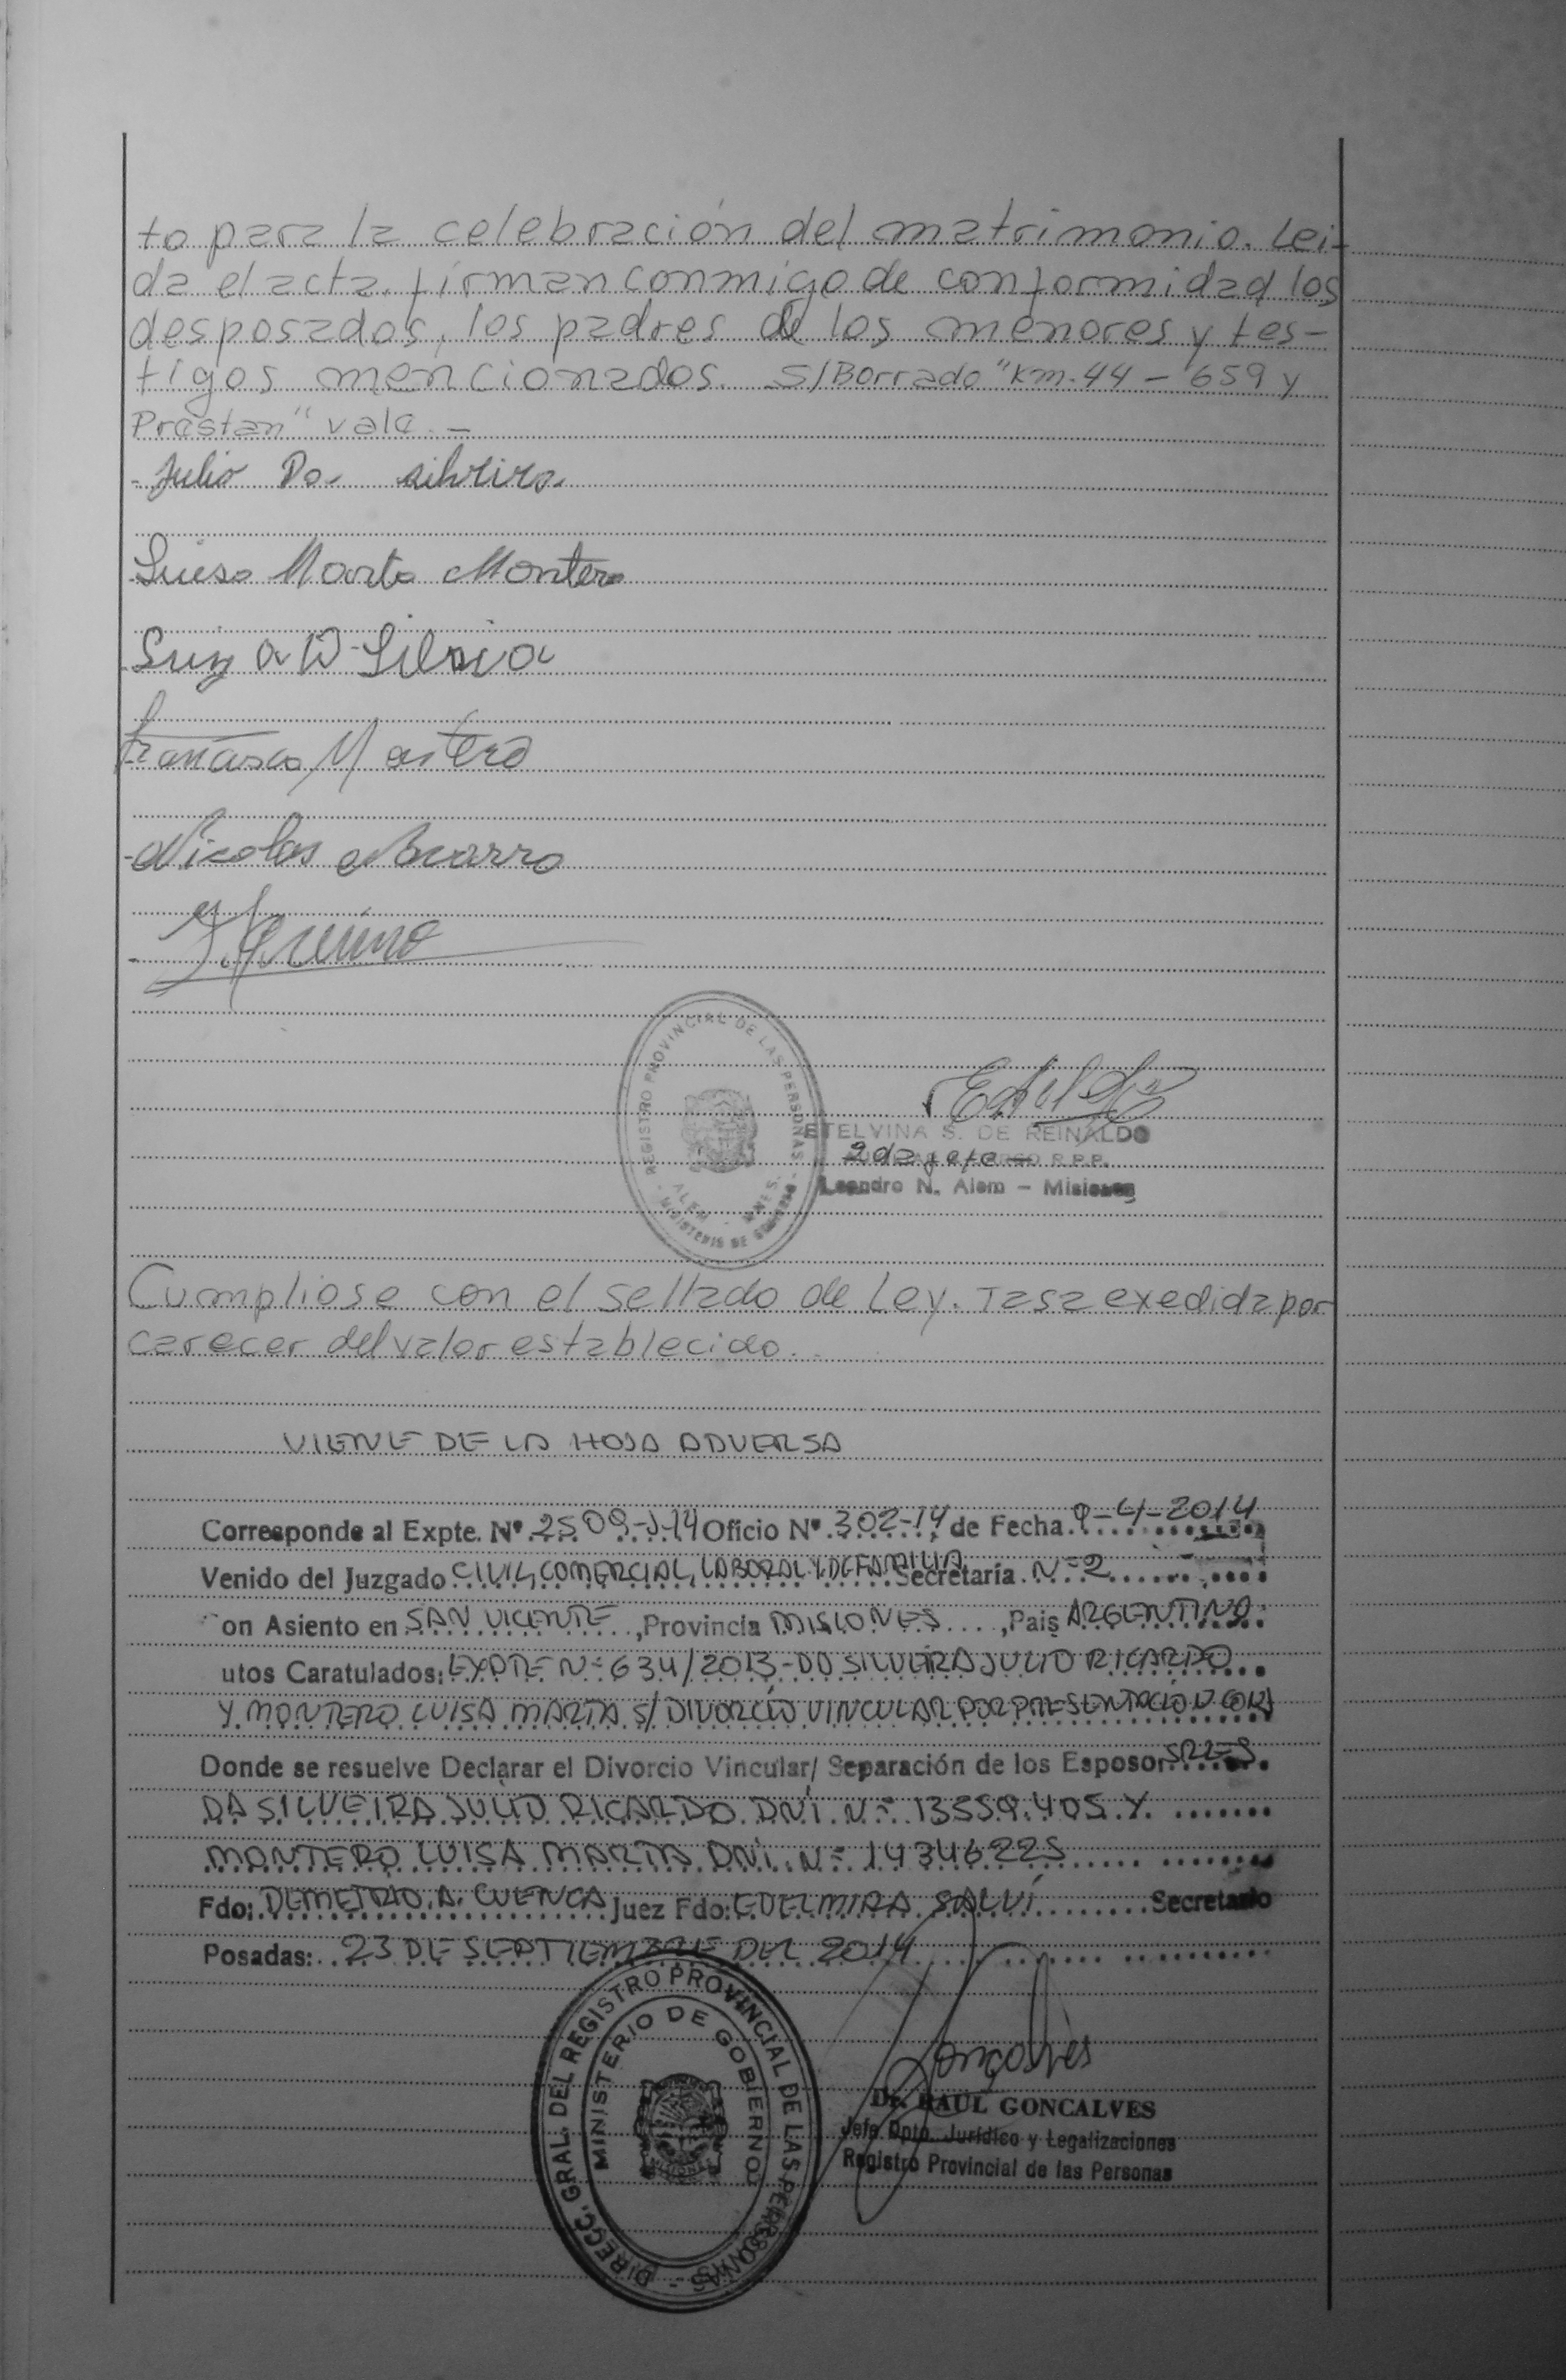 to para la celebración del matrimonio. Lei-
da el acta, firman conmigo de conformidad los
desposados, los padres de los menores y tes-
tigos mencionados. S/Borrado "Km. 44 - 659 y
Prestan" vale. -
Julio Da silveira
Luisa Marta Montero
Luiz a D Silvia
Francisco Montero
Nicolas
REGISTRO PROVINCIAL DE LAS PERSONAS
ALEM - MNES.
MINISTERIO DE GOBIERNO
ETELVINA S. DE REINALDO
2da jefe R.P.P.
Leandro N. Alem - Misiones
Cumpliose con el sellado de Ley. Tasa exedida por
carecer del valor establecido.
VIENE DE LA HOJA ADVERSA
Corresponde al Expte. Nº 2509-J-14 Oficio Nº 302-14 de Fecha 9-4-2014
Venido del Juzgado CIVIL, COMERCIAL, LABORAL Y DE FAMILIA Secretaría Nº 2
on Asiento en SAN VICENTE, Provincia MISIONES, Pais ARGENTINA
utos Caratulados: EXPTE Nº 634/2013-DA SILVEIRA JULIO RICARDO
Y MONTERO LUISA MARTA S/ DIVORCIO VINCULAR POR PRESENTACIÓN CONJ
Donde se resuelve Declarar el Divorcio Vincular/ Separación de los Esposor SRES
DA SILVEIRA JULIO RICARDO DNI. Nº 13.559.405 Y
MONTERO LUISA MARTA DNI. Nº 14346225
Fdo: DEMETRIO A. CUENCA Juez Fdo: EDELMIRA SALVÍ Secretario
Posadas: 23 DE SEPTIEMBRE DEL 2014
DIRECC. GRAL. DEL REGISTRO PROVINCIAL DE LAS PERSONAS -
MINISTERIO DE GOBIERNO
MISIONES
Goncalves
Dr. RAUL GONCALVES
Jefe Dpto. Jurídico y Legalizaciones
Registro Provincial de las Personas